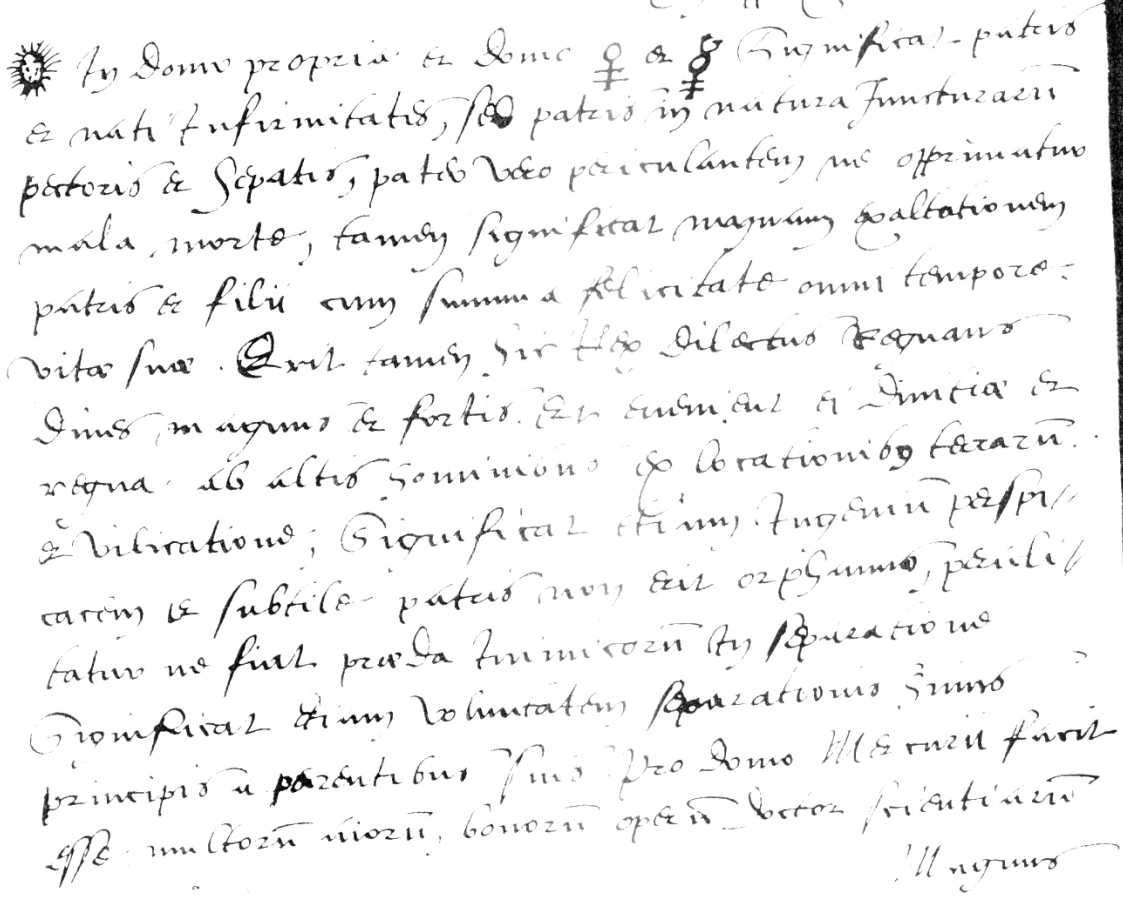 In domo propria et domo ♀ et ☿ Significat patris
et nati Infirmitates, sed patris in natura Juncturarū
pectoris et hepatis, pater vero periculantem ne opprimatur
mala morte, tamen significat magnam exaltationem
patris et filii cum summa felicitate omni tempore
vitæ suæ. Erit tamen hic Rex dilectus Regnans
diues, magnus et fortis. Et euenient ei diuitiæ et
regna ab altis hominibus ex locationibꝰ terrarū.
et vilicatione; Significat etiam Ingeniū perspi//
cacem et subtile patris non erit orphanus, pericli//
tatur ne fiat præda Inimicorū In separatione
Significat etiam voluntatem separationis huius
principis a parentibus suis. Pro domo Mercurii facit
esse multorū uiorū, bonorū operū doctor scientiarū
Magnus